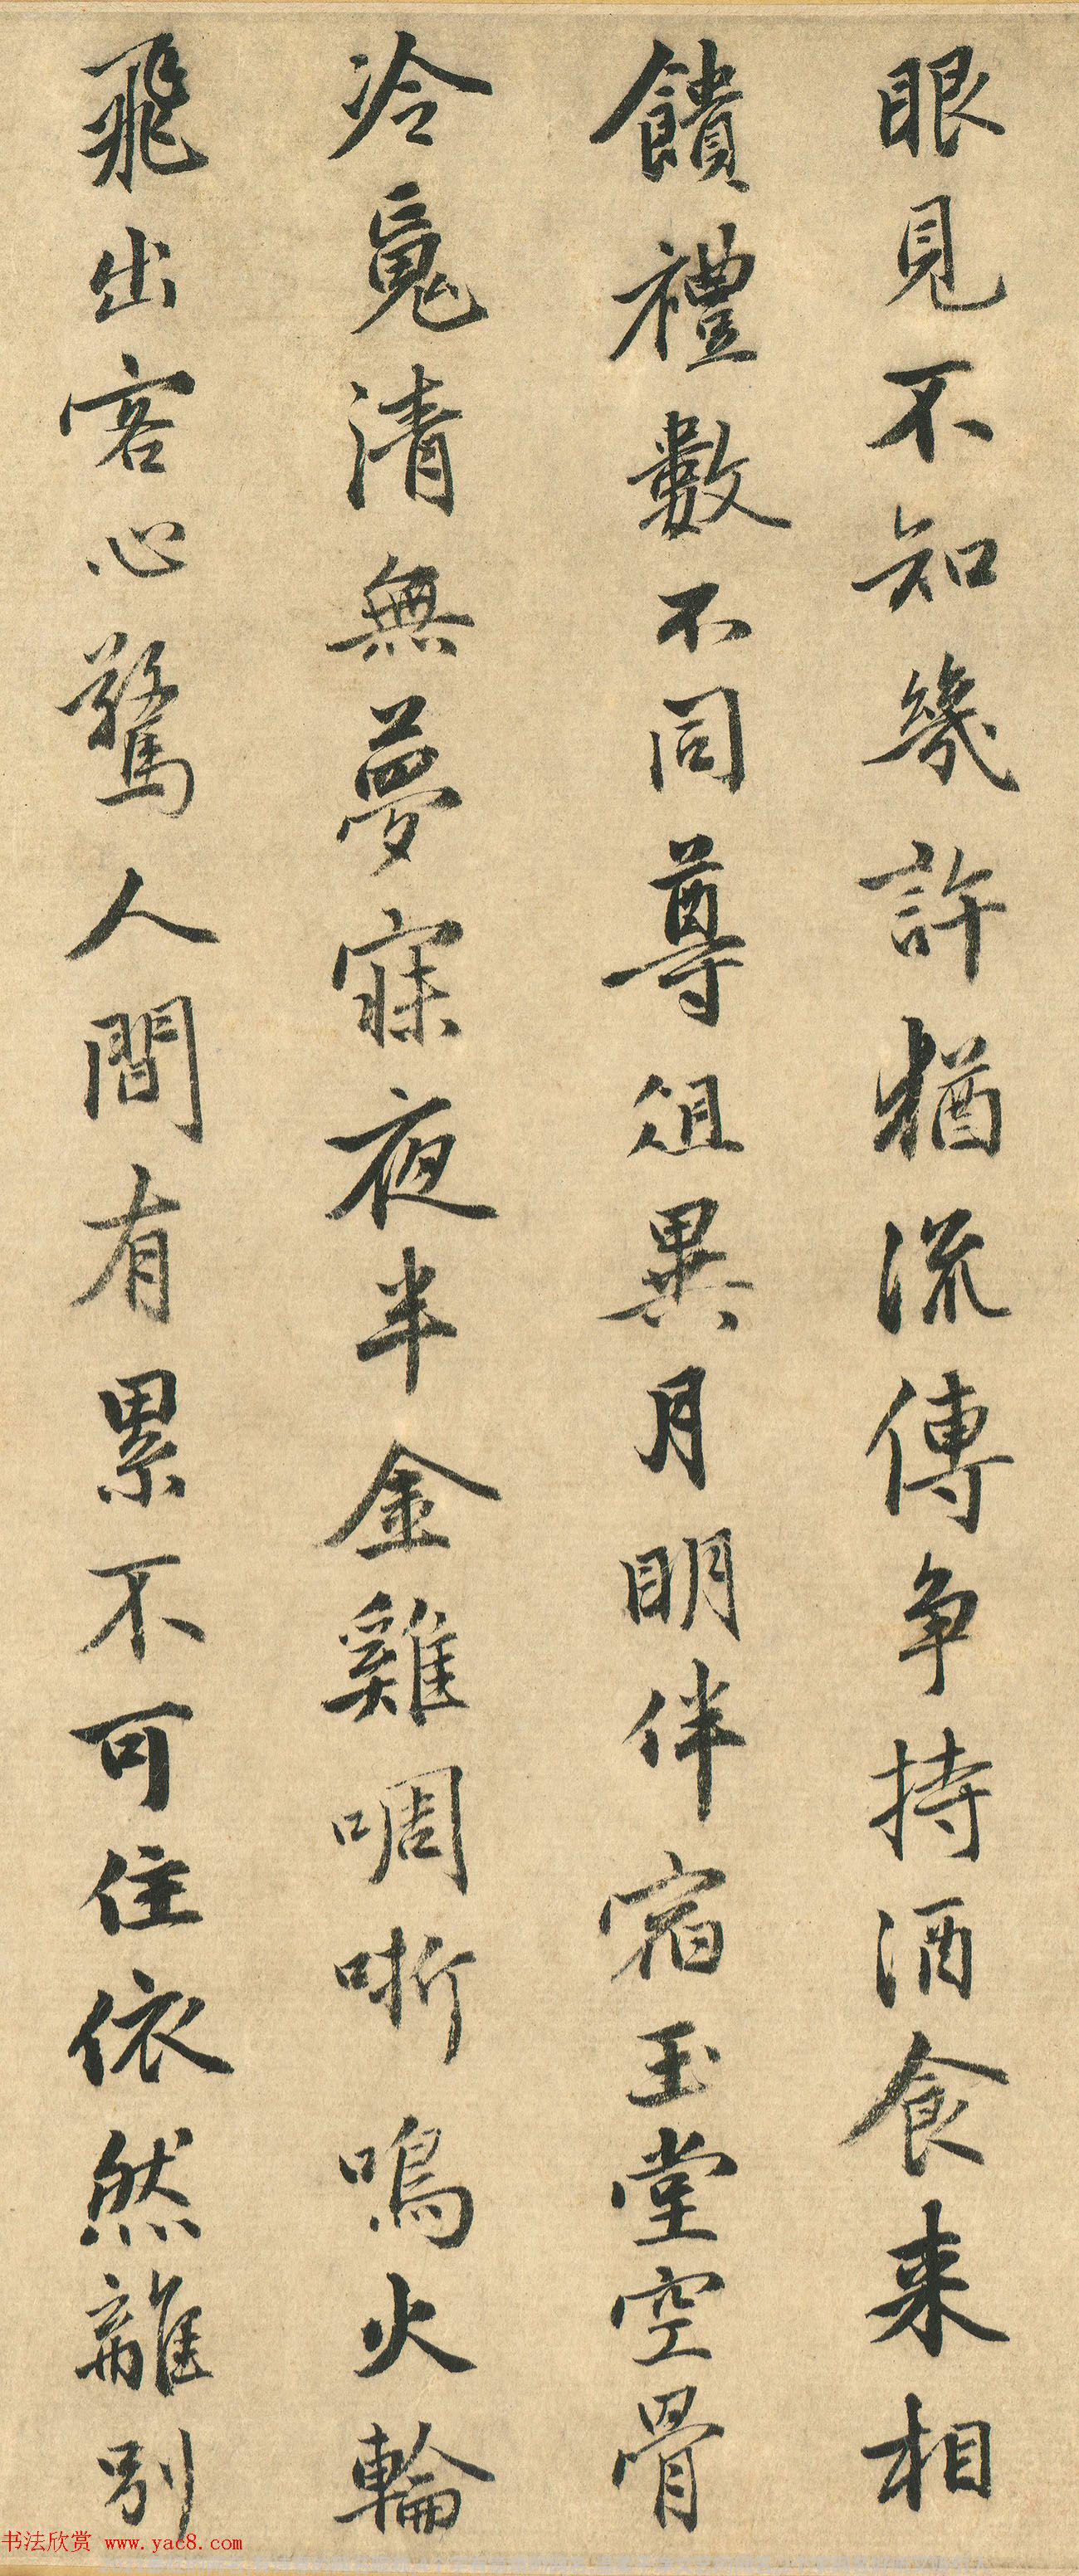 眼見不知幾許猶流傳争持酒食来相
饋禮數不同尊俎異月明伴宿玉堂空骨
冷魂清無夢寐夜半金雞啁哳鳴火輪
飛出客心驚人間有累不可住依然離別
书法欣赏 www.yac8.com